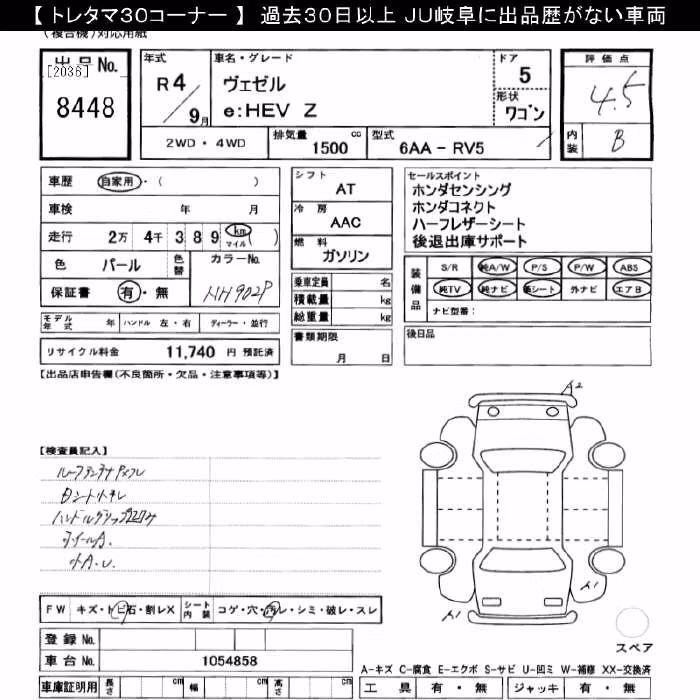 【 トレタマ30コーナー 】 過去30日以上 JU岐阜に出品歴がない車両
(複合機)対応用紙
出品No.
[2036]
8448
年式
R 4 / 9 月
車名・グレード
ヴェゼル
e:HEV Z
ドア
5
形状
ワゴン
2WD・4WD
排気量
1500 cc
型式
6AA - RV5
評価点
4.5
内装
B
車歴 自家用・( )
車検 年 月
走行 2万 4千 3 8 9 km マイル ( )
色 パール 色替 カラーNo.
保証書 有・無 NH902P
モデル年式 年 ハンドル 左・右 ディーラー・並行
リサイクル料金 11,740 円 預託済
シフト
AT
冷房
AAC
燃料
ガソリン
乗車定員 名
積載量 kg
総重量 kg
書類期限
月 日
セールスポイント
ホンダセンシング
ホンダコネクト
ハーフレザーシート
後退出庫サポート
装備品
S/R 純A/W P/S P/W ABS
純TV 純ナビ 革シート 外ナビ エアB
ナビ型番:
後日品
【出品店申告欄(不良箇所・欠品・注意事項等)】
【検査員記入】
ホイールA.
小A.U.
A2
A1
A1
スペア
FW キズ・トビ石・割レX シート内装 コゲ・穴・汚レ・シミ・破レ・スレ
登録 No.
車台 No. 1054858
車庫証明用 長さ cm 幅 cm 高さ cm
A-キズ C-腐食 E-エクボ S-サビ U-凹ミ W-補修 XX-交換済
工具 有・無 ジャッキ 有・無